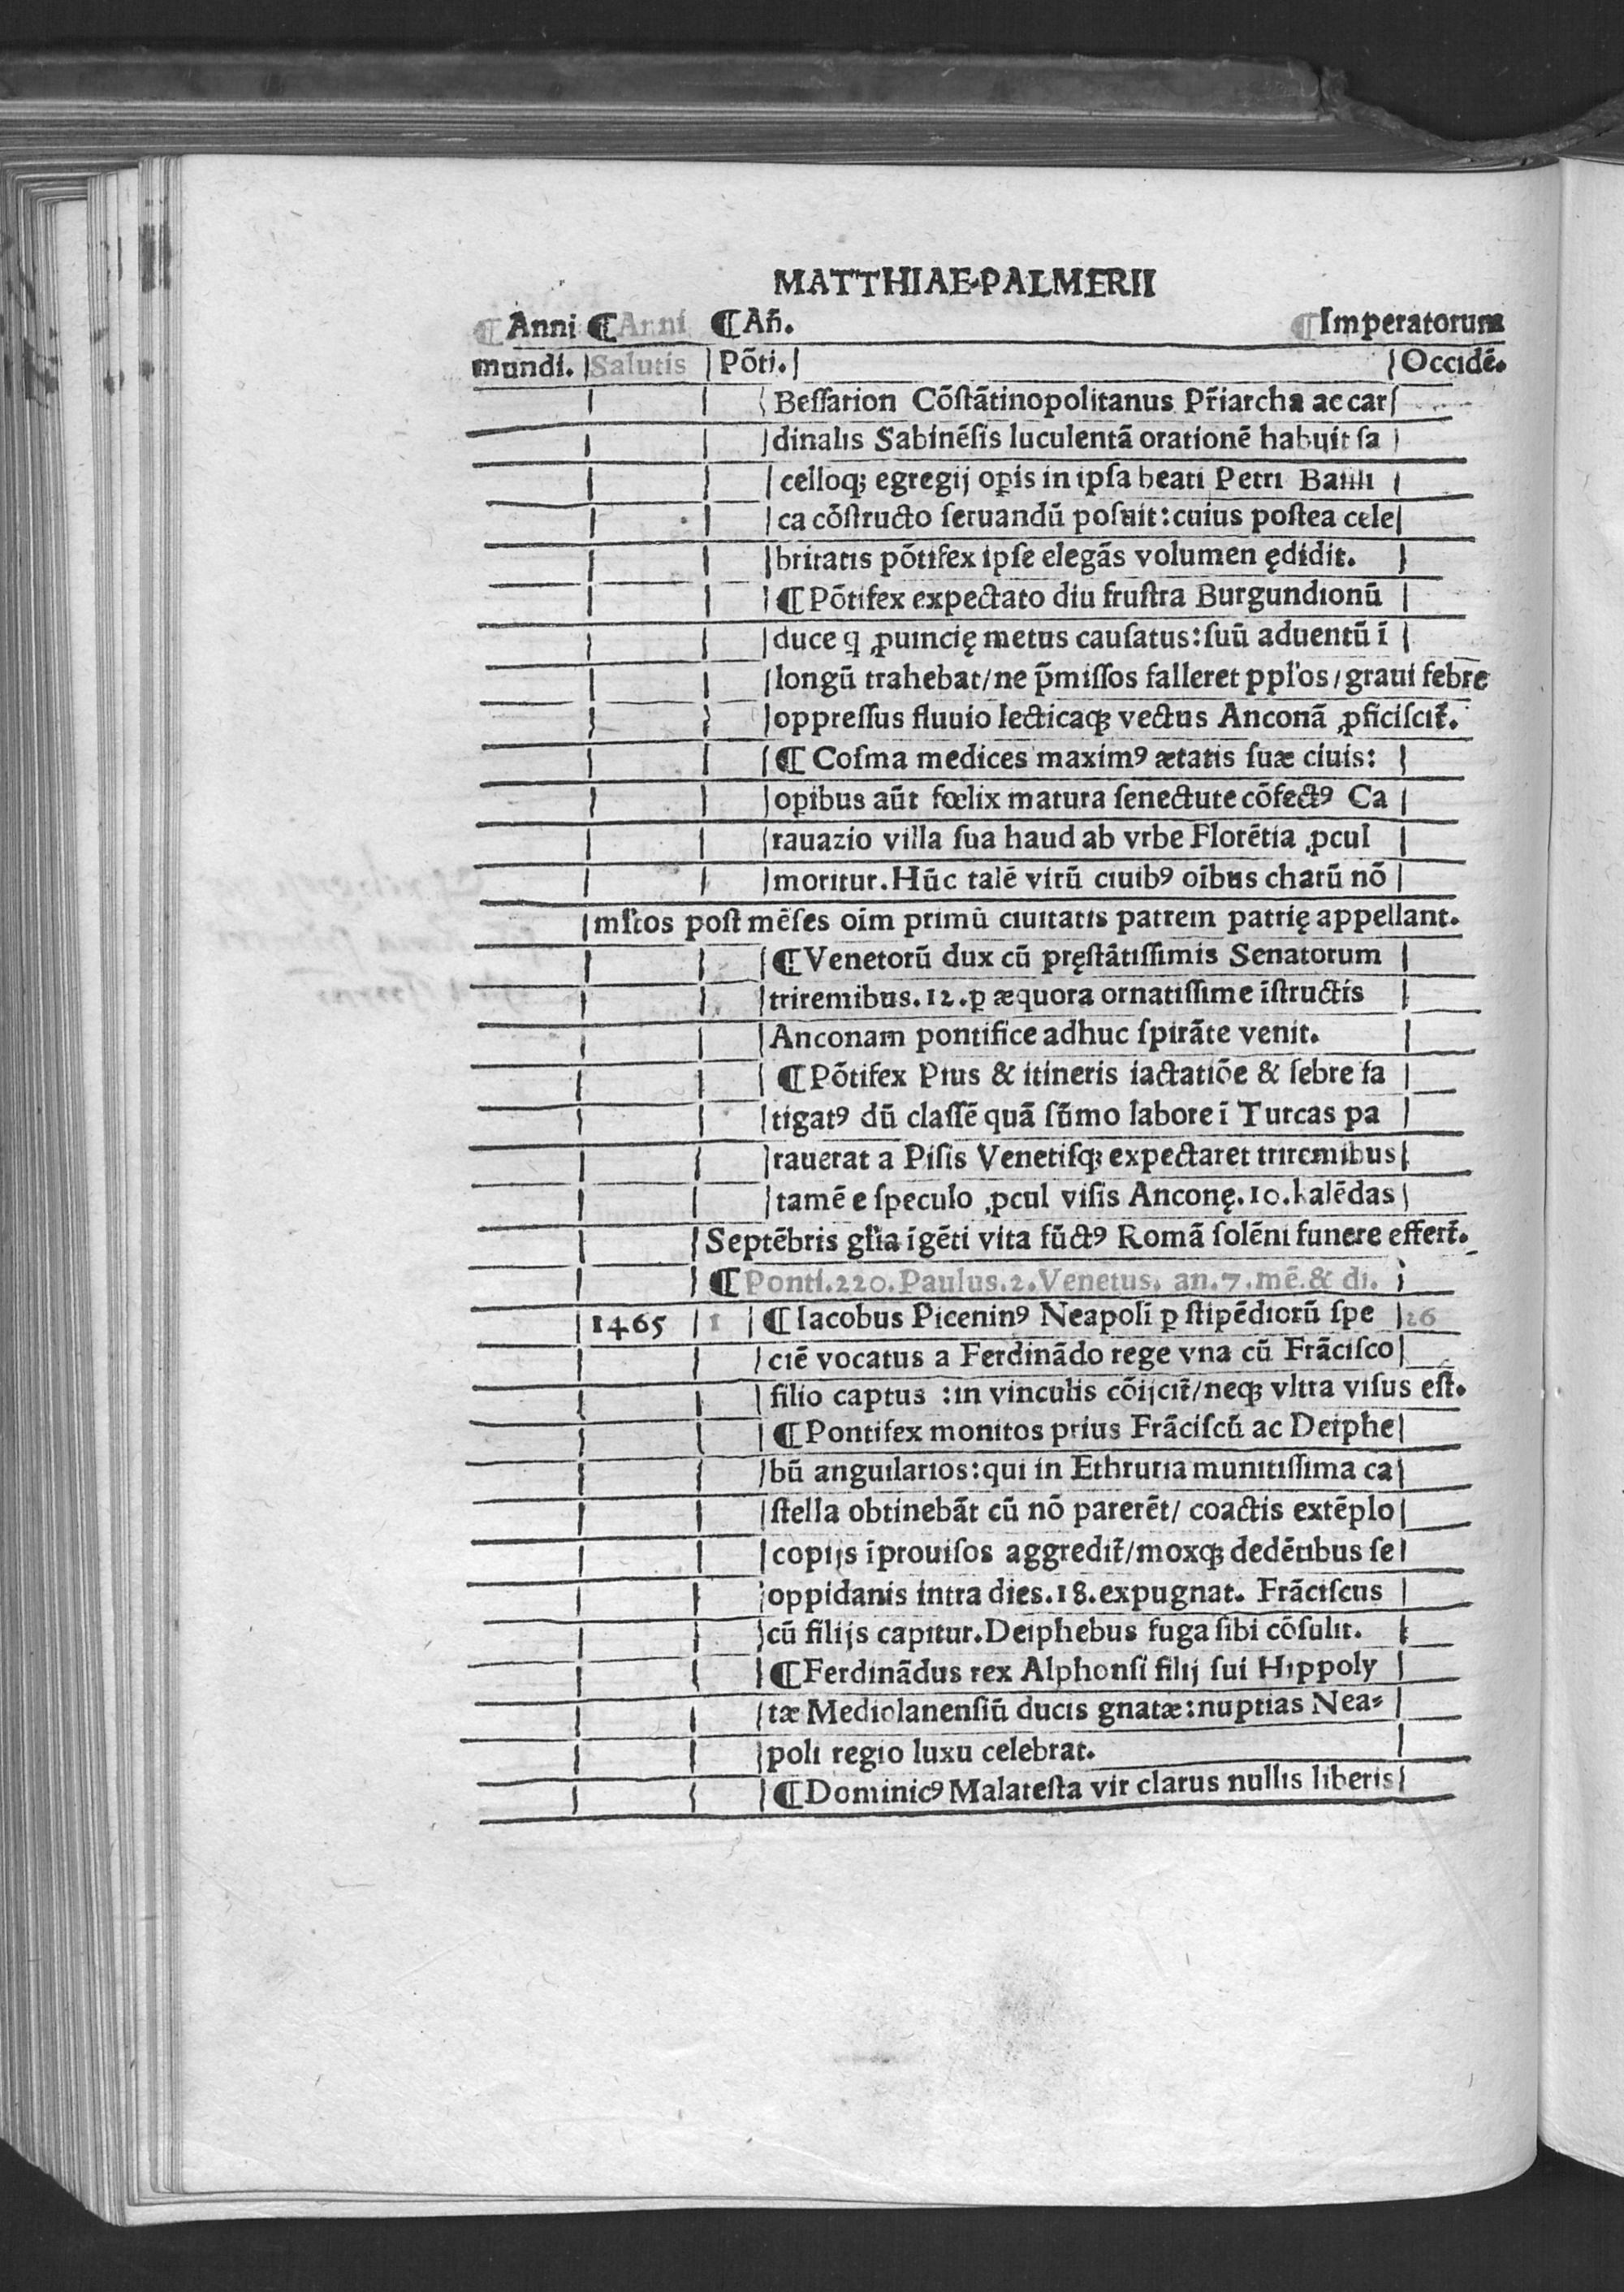 MATTHIAE·PALMERII
¶Anni ¶Anni ¶Añ. ¶Imperatorum
mundi. Salutis Põti. Occidẽ.
Beſſarion Cõſtãtinopolitanus Pr̃iarcha ac car
dinalis Sabinẽſis luculentã orationẽ habuit ſa
celloqꝫ egregij oꝑis in ipſa beati Petri Baſili
ca cõſtructo ſeruandũ poſuit: cuius poſtea cele
britatis põtifex ipſe elegãs volumen ędidit.
¶Põtifex expectato diu fruſtra Burgundionũ
duce ꝗ ꝓuincię metus cauſatus: ſuũ aduentũ ĩ
longũ trahebat/ne p̃miſſos falleret ppľos/graui febre
oppreſſus fluuio lecticaqꝫ vectus Anconã ꝓficiſcit̃.
¶Coſma medices maximꝰ ætatis ſuæ ciuis:
oꝑibus aũt fœlix matura ſenectute cõfectꝰ Ca
rauazio villa ſua haud ab vrbe Florẽtia ꝓcul
moritur. Hũc talẽ virũ ciuibꝰ oĩbus charũ nõ
mľtos poſt mẽſes oĩm primũ ciuitatis patrem patrię appellant.
¶Venetorũ dux cũ pręſtãtiſſimis Senatorum
triremibus. 12. ꝑ æquora ornatiſſime ĩſtructis
Anconam pontifice adhuc ſpirãte venit.
¶Põtifex Pius & itineris iactatiõe & febre fa
tigatꝰ dũ claſſẽ quã ſũmo labore ĩ Turcas pa
rauerat a Piſis Venetiſqꝫ expectaret triremibus
tamẽ e ſpeculo ꝓcul viſis Anconę. 10. kalẽdas
Septẽbris gľia ĩgẽti vita fũctꝰ Romã ſolẽni funere effert̃.
¶Ponti. 220. Paulus. 2. Venetus. an. 7. mẽ. & di.
1465 1 ¶Iacobus Piceninꝰ Neapoli ꝑ ſtipẽdiorũ ſpe 26
ciẽ vocatus a Ferdinãdo rege vna cũ Frãciſco
filio captus : in vinculis cõijcit̃/neqꝫ vltra viſus eſt.
¶Pontifex monitos prius Frãciſcũ ac Deiphe
bũ anguilarios: qui in Ethruria munitiſſima ca
ſtella obtinebãt cũ nõ parerẽt/ coactis extẽplo
copijs ĩprouiſos aggredit̃/moxqꝫ dedẽtibus ſe
oppidanis intra dies. 18. expugnat. Frãciſcus
cũ filijs capitur. Deiphebus fuga ſibi cõſulit.
¶Ferdinãdus rex Alphonſi filij ſui Hippoly
tæ Mediolanenſiũ ducis gnatæ: nuptias Nea⸗
poli regio luxu celebrat.
¶Dominicꝰ Malateſta vir clarus nullis liberis